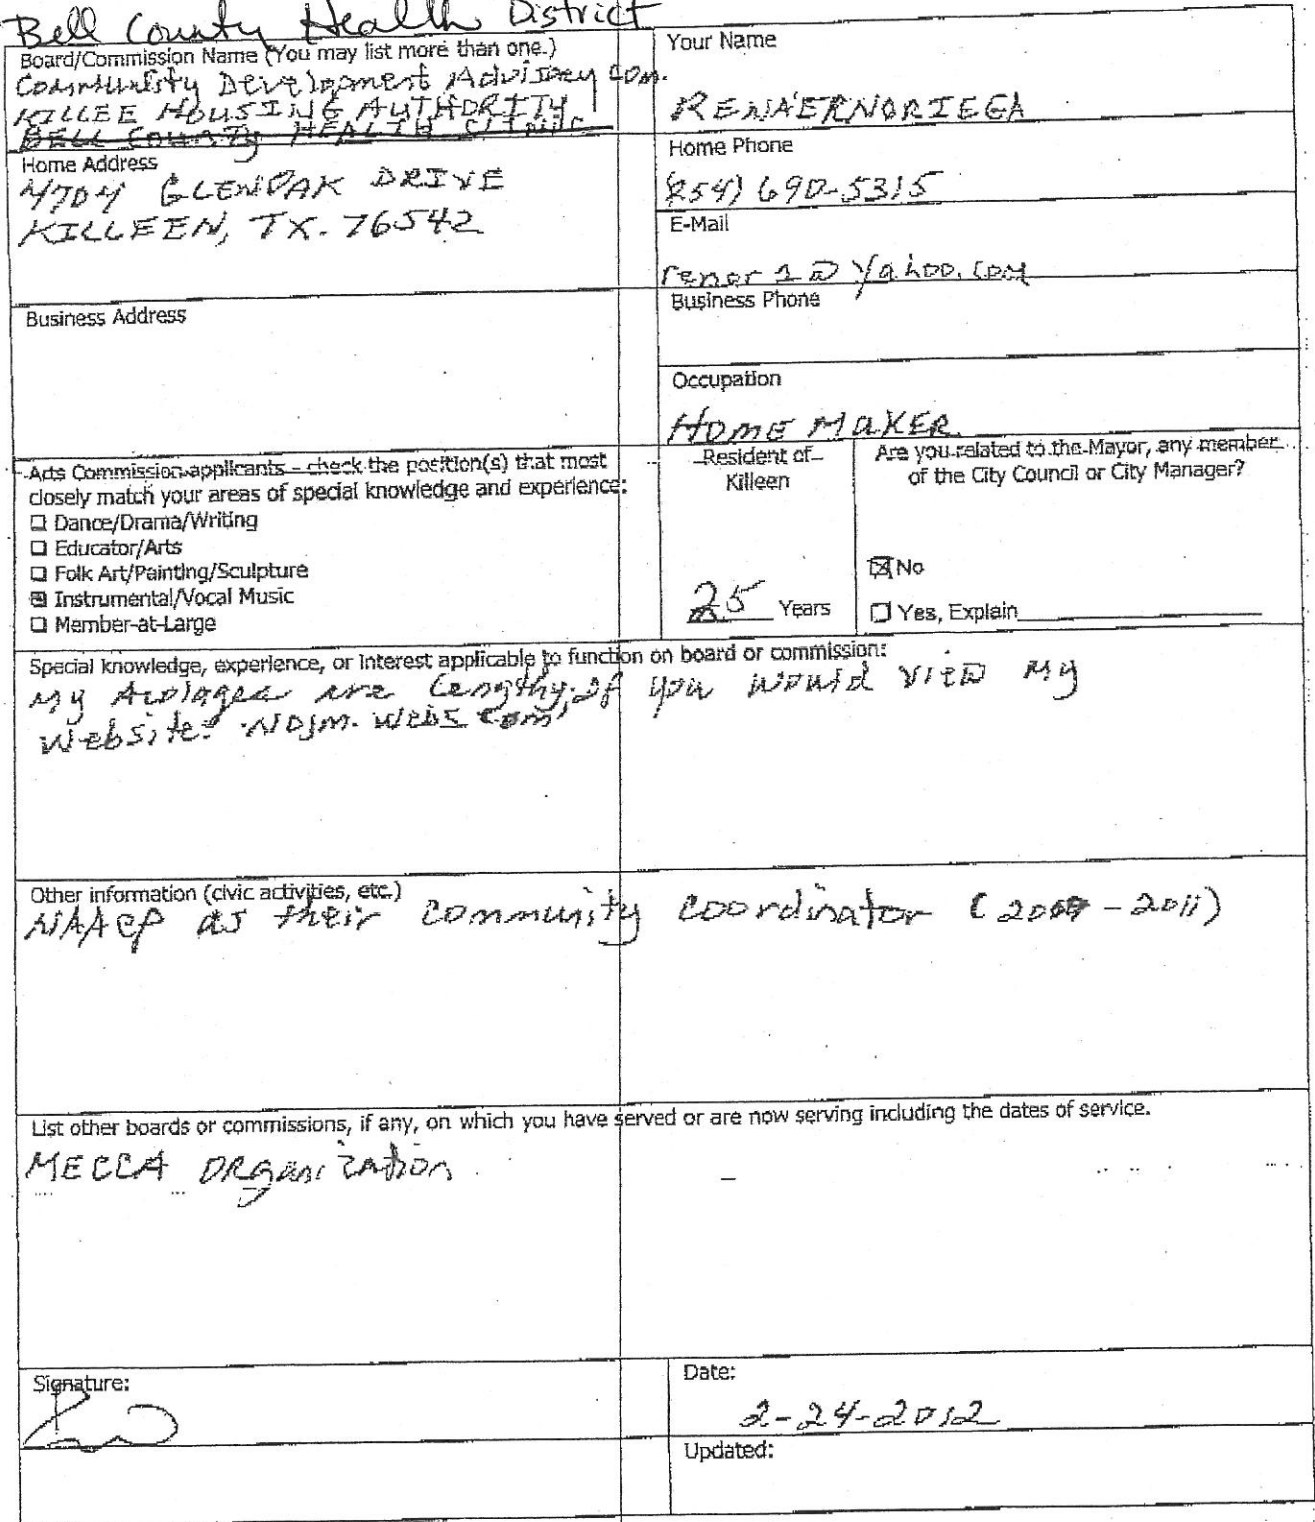 Bell County Health District
Board/Commission Name (You may list more than one.)
Community Development Advisory Com.
KILLEE HOUSING AUTHORITY
BELL COUNTY HEALTH Clinic
Your Name
RENA'ERNORIEGA
Home Address
4704 GLENOAK DRIVE
KILLEEN, TX. 76542
Home Phone
(254) 690-5315
E-Mail
renor1@yahoo.com
Business Address
Business Phone
Occupation
HOME MAKER
Arts Commission applicants - check the position(s) that most
closely match your areas of special knowledge and experience:
☐ Dance/Drama/Writing
☐ Educator/Arts
☐ Folk Art/Painting/Sculpture
☒ Instrumental/Vocal Music
☐ Member-at-Large
Resident of
Killeen
25 Years
Are you related to the Mayor, any member
of the City Council or City Manager?
☒ No
☐ Yes, Explain
Special knowledge, experience, or interest applicable to function on board or commission:
My are Lengthy, if you would view my
website: Nojm.webs com
Other information (civic activities, etc.)
NAACP as their community coordinator ( - 2011)
List other boards or commissions, if any, on which you have served or are now serving including the dates of service.
MECCA ORganization
Signature:
Date:
2-24-2012
Updated: